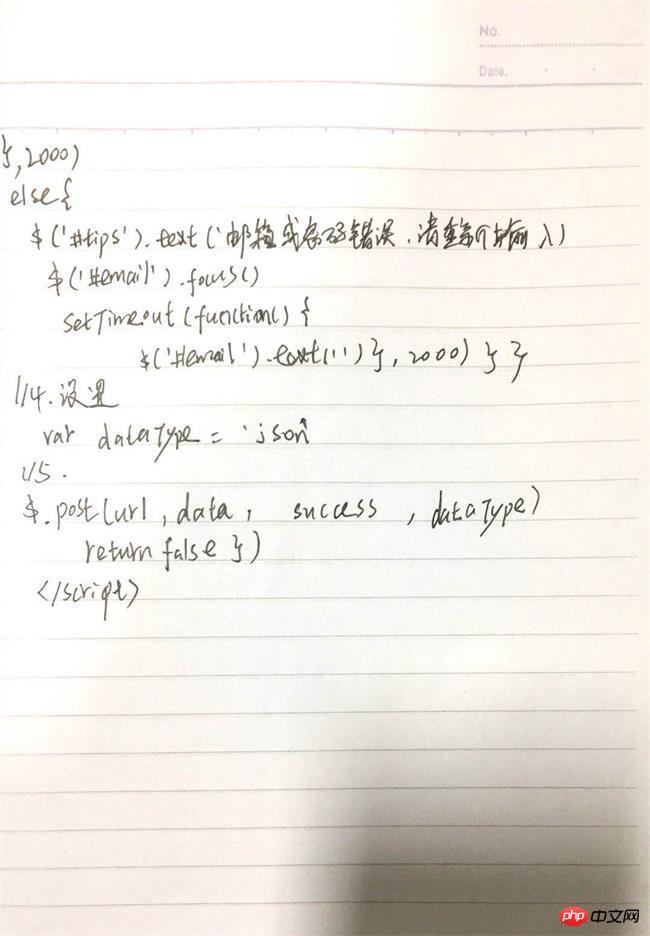 No.
Date.
},2000)
else{
$('#tips').text('邮箱或密码错误,请重新输入)
$('#email').focus()
setTimeout(function() {
$('#email').text('') }, 2000) } }
//4.设置
var dataType = 'json'
//5.
$.post(url, data, success, dataType)
return false })
</script>
php 中文网